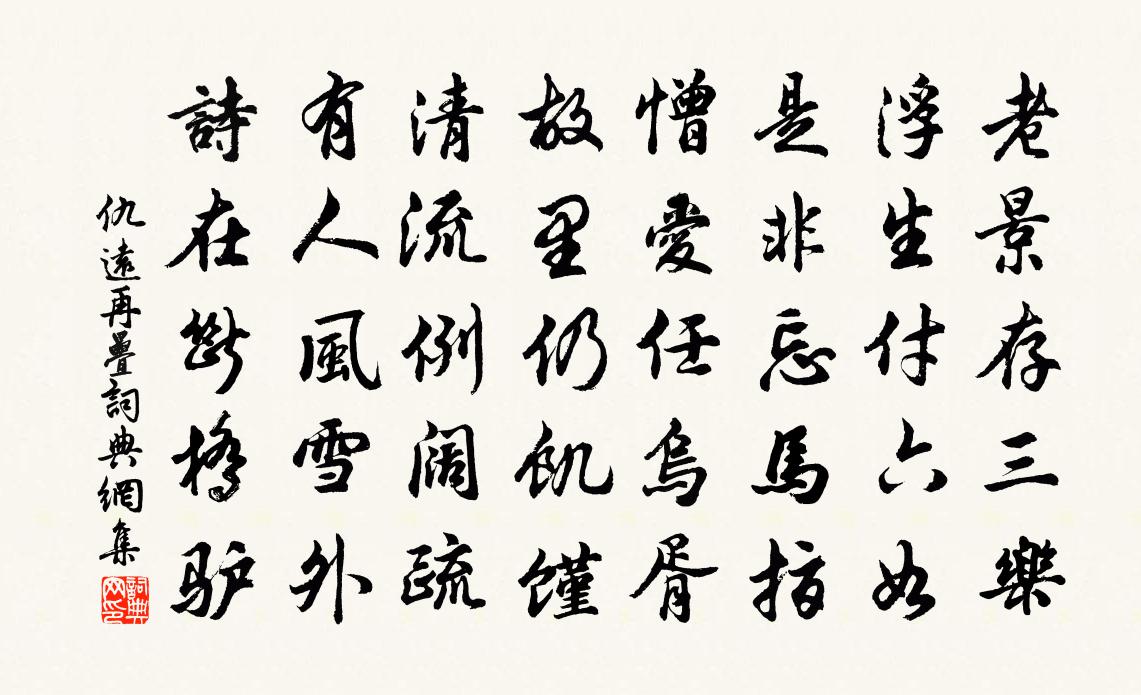 老景存三樂
浮生付六如
是非忘馬指
憎愛任烏胥
故里仍飢馑
清流例阔疏
有人風雪外
詩在斷橋驴
仇遠再疊詞典網集
詞典網印